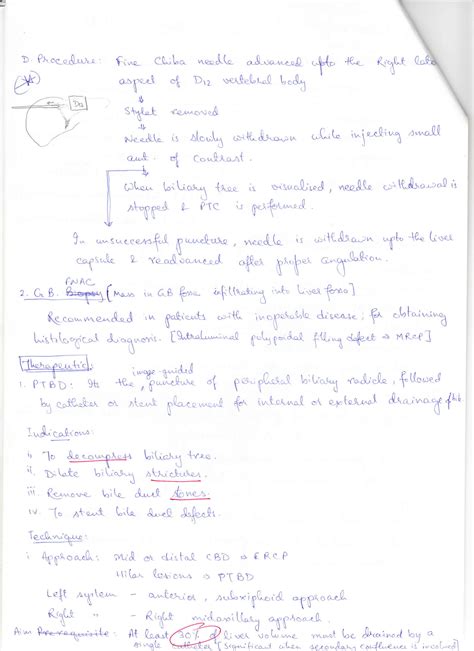 D. Procedure: Fine Chiba needle advanced upto the Right late
aspect of D12 vertebral body
D12
Stylet removed
Needle is slowly withdrawn while injecting small
amt. of contrast.
When biliary tree is visualised, needle withdrawal is
stopped & PTC is performed.
In unsuccessful puncture, needle is withdrawn upto the liver
capsule & readvanced after proper angulation.
FNAC
2. G.B. Biopsy [Mass in GB fossa infiltrating into liver fossa]
Recommended in patients with inoperable disease, for obtaining
histological diagnosis. [Intraluminal polypoidal filling defect → MRCP]
Therapeutic:
image guided
1. PTBD: Its the, puncture of peripheral biliary radicle, followed
by catheter or stent placement for internal or external drainage of bile
Indications:
i. To decompress biliary tree.
ii. Dilate biliary strictures.
iii. Remove bile duct stones.
iv. To stent bile duct defects.
Technique:
i Approach: Mid or distal CBD → ERCP
Hilar lesions → PTBD
Left system - anterior, subxiphoid approach
Right " - Right midaxillary approach.
Aim Prerequisite: At least 30% of liver volume must be drained by a
single catheter [Significant when secondary confluence is involved]